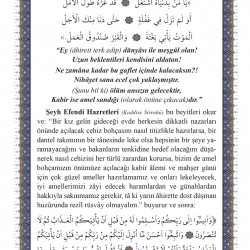 يَا مَنْ بِدُنْيَاهُ اشْتَغَلْ ❁ قَدْ غَرَّهُ طُولُ الْأَمَلْ
أَوَ لَمْ يَزَلْ فِي غَفْلَةٍ ❁ حَتَّى دَنَا مِنْكَ الْأَجَلْ
اَلْمَوْتُ يَأْتِي بَغْتَةً ❁ وَالْقَبْرُ صُنْدُوقُ الْعَمَلْ
"Ey (âhireti terk edip) dünyâsı ile meşgûl olan!
Uzun beklentileri kendisini aldatan!
Ne zamâna kadar bu gaflet içinde kalacaksın?!
Nihâyet sana ecel çok yaklaşmıştır.
(Şunu bil ki) ölüm ansızın gelecektir,
Kabir ise amel sandığı (olarak önüne çıkacak)dır."
Şeyh Efendi Hazretleri (Kuddise Sirruhû) bu beyitleri okur
ve: "Bir kız gelin gideceği evde herkesin dikkatli nazarları
önünde açılacak cehiz bohçasını nasıl titizlikle hazırlarsa, bir
dantel takımının bir tânesinde leke olsa hepsinde bir şeye yara-
mayacağını ve bakanların tenkidine hedef olacağını düşü-
nerek nasıl cehizini her türlü zarardan korursa, bizim de amel
bohçamızın önümüze açılacak kabir âlemi ve mahşer günü
için çok güzel ameller hazırlamamız ve onları lekeleyecek,
iyi amellerimizi zâyi edecek haramlardan ve günahlardan
hakkıyla sakınmamız gerekir, tâ ki yarın âhirette dost düşman
huzûrunda rezil rüsvay olmayalım." buyurur ve sonra:
﴿وَأَنِيبُوا إِلَى رَبِّكُمْ وَأَسْلِمُوا لَهُ مِنْ قَبْلِ أَنْ يَأْتِيَكُمُ الْعَذَابُ ثُمَّ لَا